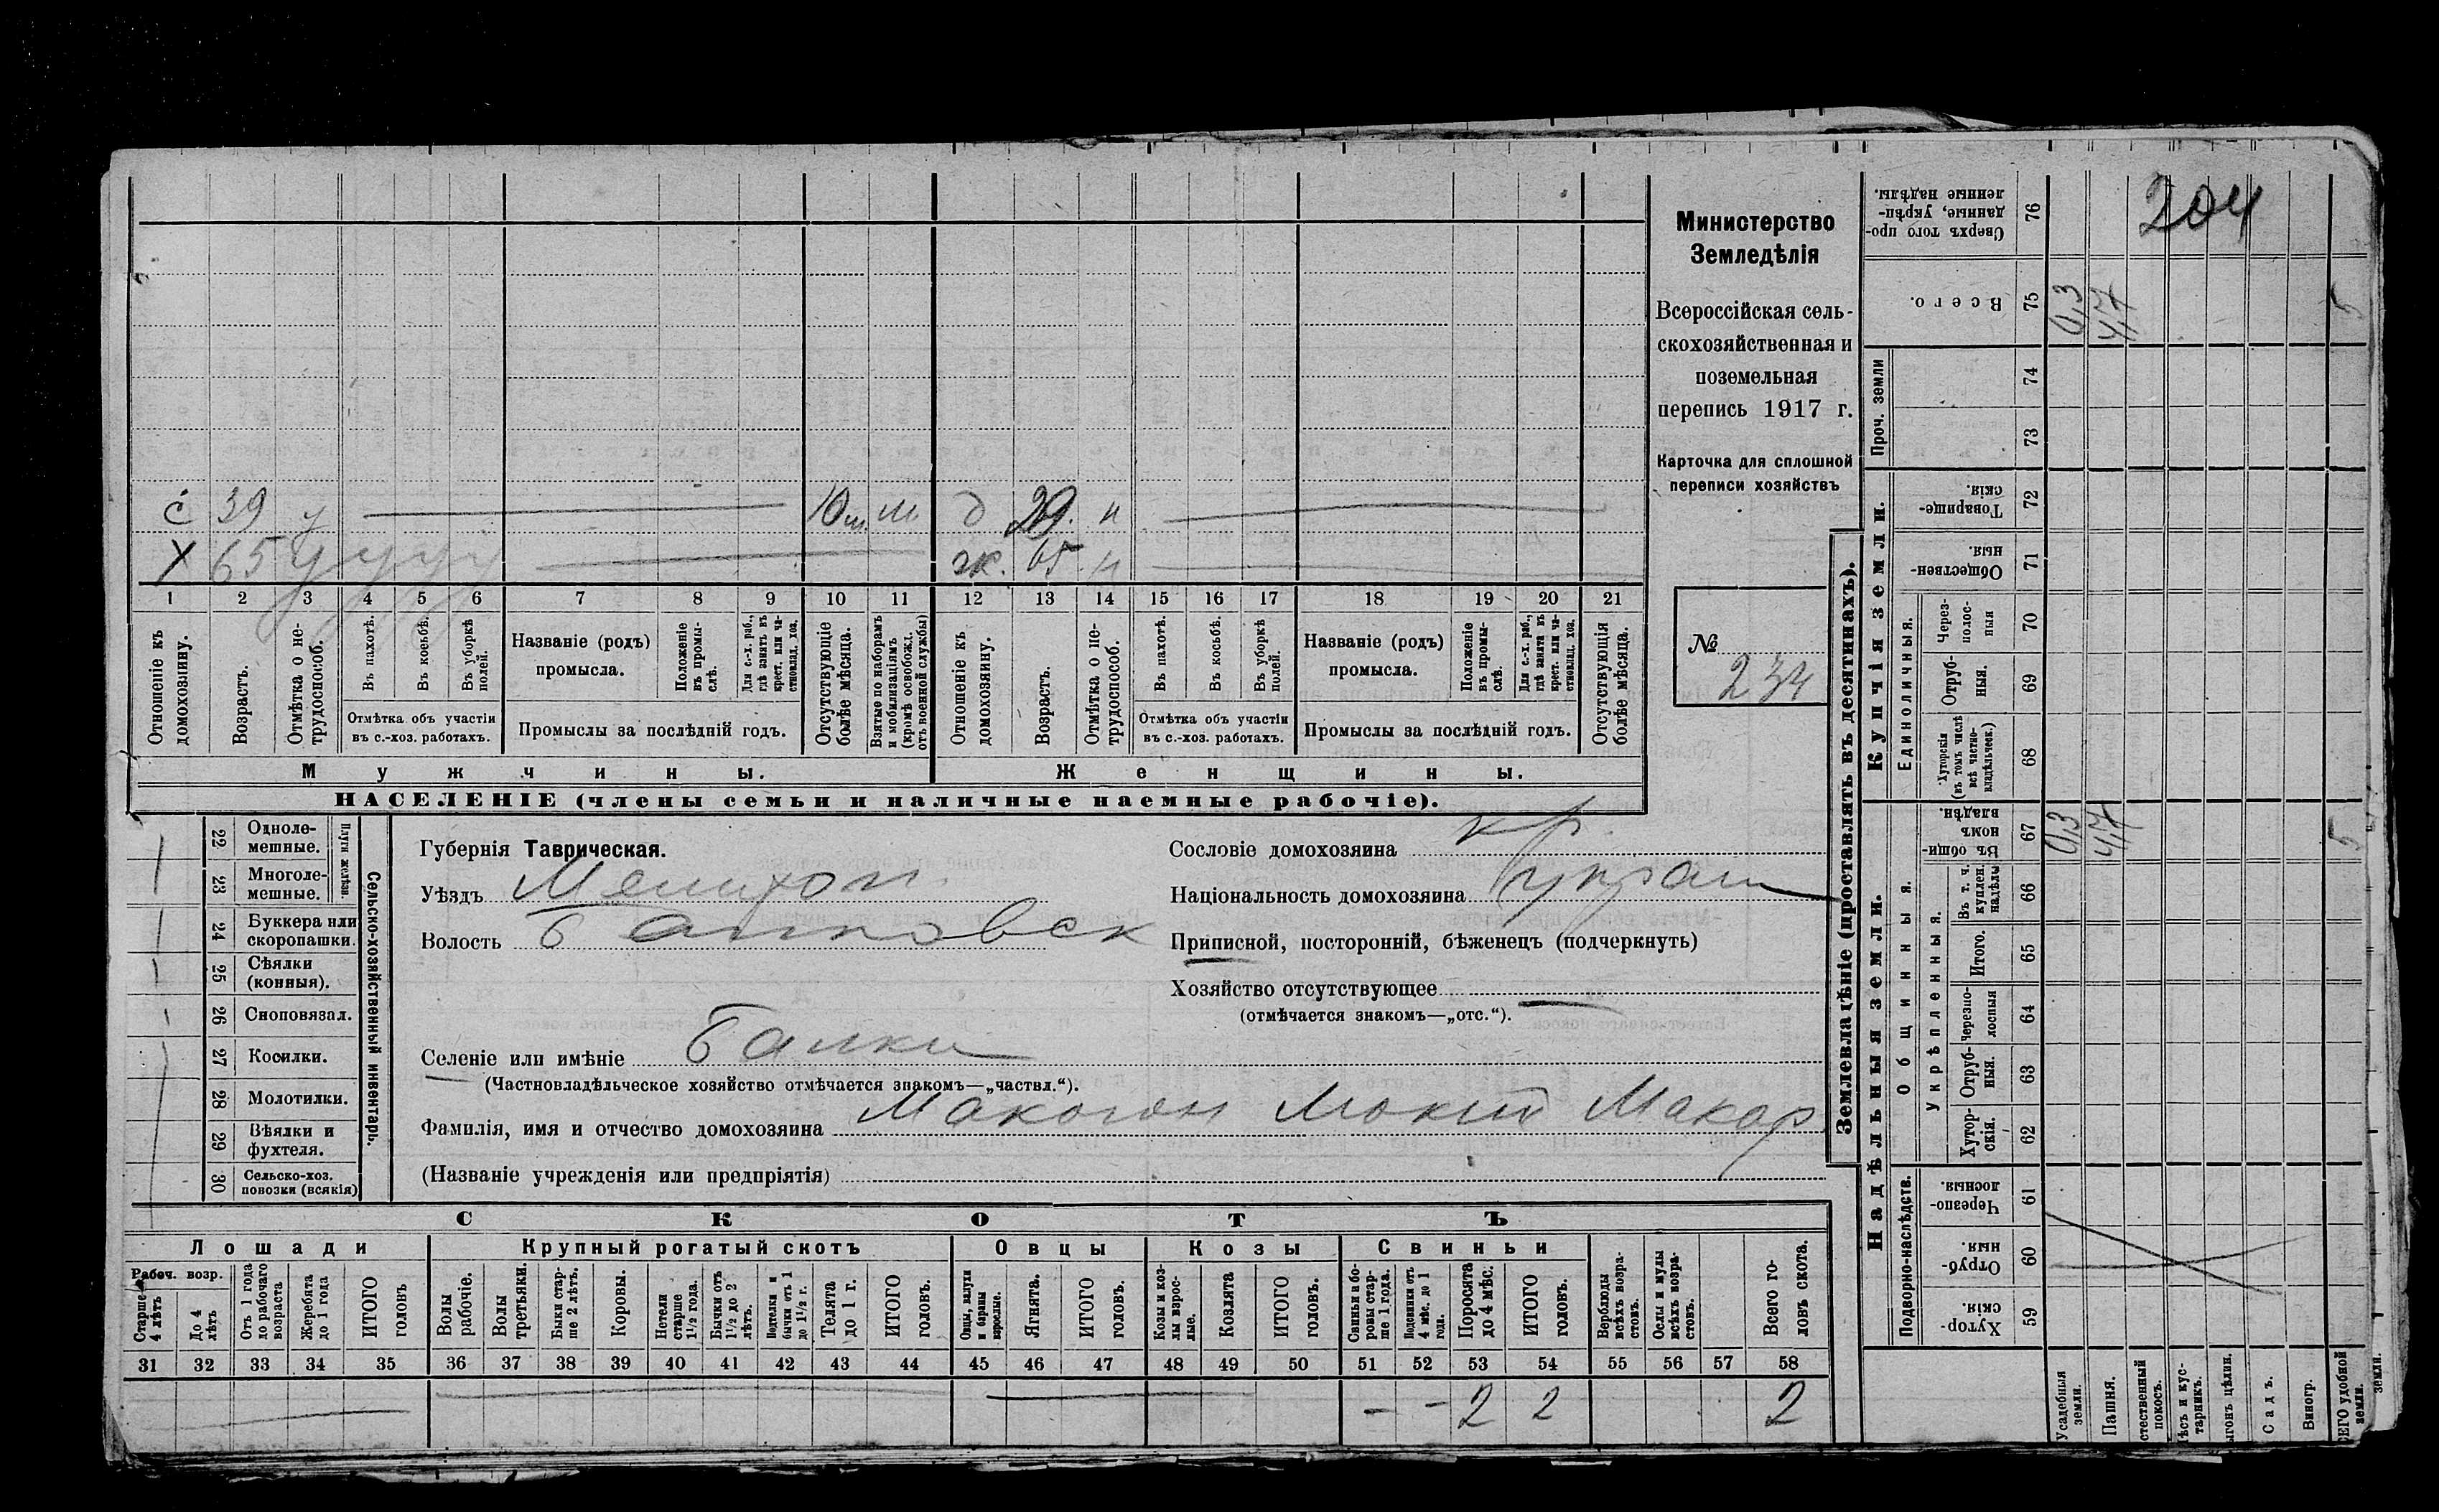 204
Министерство
Земледѣлія
Всероссійская сель-
скохозяйственная и
поземельная
перепись 1917 г.
Карточка для сплошной
переписи хозяйствъ
№
234
с 39 у 10 м. м. д 29. н
Х 65 у у у у ж. 65 н
1 2 3 4 5 6 7 8 9 10 11 12 13 14 15 16 17 18 19 20 21
Отношеніе къ домохозяину.
Возрастъ.
Отмѣтка о не-трудоспособ.
Въ пахотѣ.
Въ косьбѣ.
Въ уборкѣ полей.
Отмѣтка объ участіи
въ с.-хоз. работахъ.
Названіе (родъ)
промысла.
Положеніе въ промы-слѣ.
Для с.-х. раб., гдѣ занятъ въ крест. или ча-стновлад. хоз.
Промыслы за послѣдній годъ.
Отсутствующіе болѣе мѣсяца.
Взятые по наборамъ и мобилизаціямъ (кромѣ освобожд. отъ военной службы)
Отношеніе къ домохозяину.
Возрастъ.
Отмѣтка о не-трудоспособ.
Въ пахотѣ.
Въ косьбѣ.
Въ уборкѣ полей.
Отмѣтка объ участіи
въ с.-хоз. работахъ.
Названіе (родъ)
промысла.
Положеніе въ промы-слѣ.
Для с.-х. раб., гдѣ занята въ крест. или ча-стновлад. хоз.
Промыслы за послѣдній годъ.
Отсутствующія болѣе мѣсяца.
Мужчины.
Женщины.
НАСЕЛЕНІЕ (члены семьи и наличные наемные рабочіе).
22 Одноле-мешные.
23 Многоле-мешные.
Плуги желѣзн.
24 Буккера или скоропашки.
25 Сѣялки (конныя).
26 Сноповязал.
27 Косилки.
28 Молотилки.
29 Вѣялки и фухтеля.
30 Сельско-хоз. повозки (всякія)
Сельско-хозяйственный инвентарь.
Губернія Таврическая.
Уѣздъ Мелитоп.
Волость Балковск
Селеніе или имѣніе Балки
(Частновладѣльческое хозяйство отмѣчается знакомъ—„частвл.“).
Фамилія, имя и отчество домохозяина Макогон Мокій Макар
(Названіе учрежденія или предпріятія)
Сословіе домохозяина кр.
Національность домохозяина украи
Приписной, посторонній, бѣженецъ (подчеркнуть)
Хозяйство отсутствующее
(отмѣчается знакомъ—„отс.“).
СКОТЪ
Лошади
Крупный рогатый скотъ
Овцы
Козы
Свиньи
Рабоч. возр.
Старше 4 лѣтъ
До 4 лѣтъ
Отъ 1 года до рабочаго возраста
Жеребята до 1 года
ИТОГО головъ
Волы рабочіе.
Волы третьяки.
Быки стар-ше 2 лѣтъ.
Коровы.
Нетели старше 1½ года.
Бычки отъ 1½ до 2 лѣтъ.
Подтелки и бычки отъ 1 до 1½ г.
Телята до 1 г.
ИТОГО головъ.
Овцы, валухи и бараны взрослые.
Ягнята.
ИТОГО головъ.
Козы и коз-лы взрос-лые.
Козлята
ИТОГО головъ.
Свиньи и бо-ровы стар-ше 1 года.
Подсвинки отъ 4 мѣс. до 1 года.
Поросята до 4 мѣс.
ИТОГО головъ.
Верблюды всѣхъ возра-стовъ.
Ослы и мулы всѣхъ возра-стовъ.
Всего го-ловъ скота.
31 32 33 34 35 36 37 38 39 40 41 42 43 44 45 46 47 48 49 50 51 52 53 54 55 56 57 58
— — 2 2 2
Землевладѣніе (проставлять въ десятинахъ).
Купчія земли.
Надѣльныя земли.
Сверхъ того про-данные, укрѣп-ленные надѣлы. 76
Всего. 75 0,3 4,7 5
Проч. земли
74
73
Товарище-скія. 72
Обществен-ныя. 71
Единоличныя.
Через-полос-ныя 70
Отруб-ныя. 69
Хуторскія (въ томъ числѣ всѣ частно-владѣльческ.) 68
Общинныя.
Въ общи-номъ владѣн. 67 0,3 4,7 5
Укрѣпленныя.
Въ т. ч. куплен. надѣлы 66
Итого. 65
Черезпо-лосныя 64
Отруб-ныя. 63
Хутор-скія. 62
Подворно-наслѣдств.
Черезпо-лосныя. 61
Отруб-ныя. 60
Хутор-скія. 59
Усадебныя земли.
Пашня.
стественный покосъ.
ѣсъ и кус-тарникъ.
ыгонъ цѣлин.
Садъ.
Виногр.
СЕГО удобной земли.
земли.